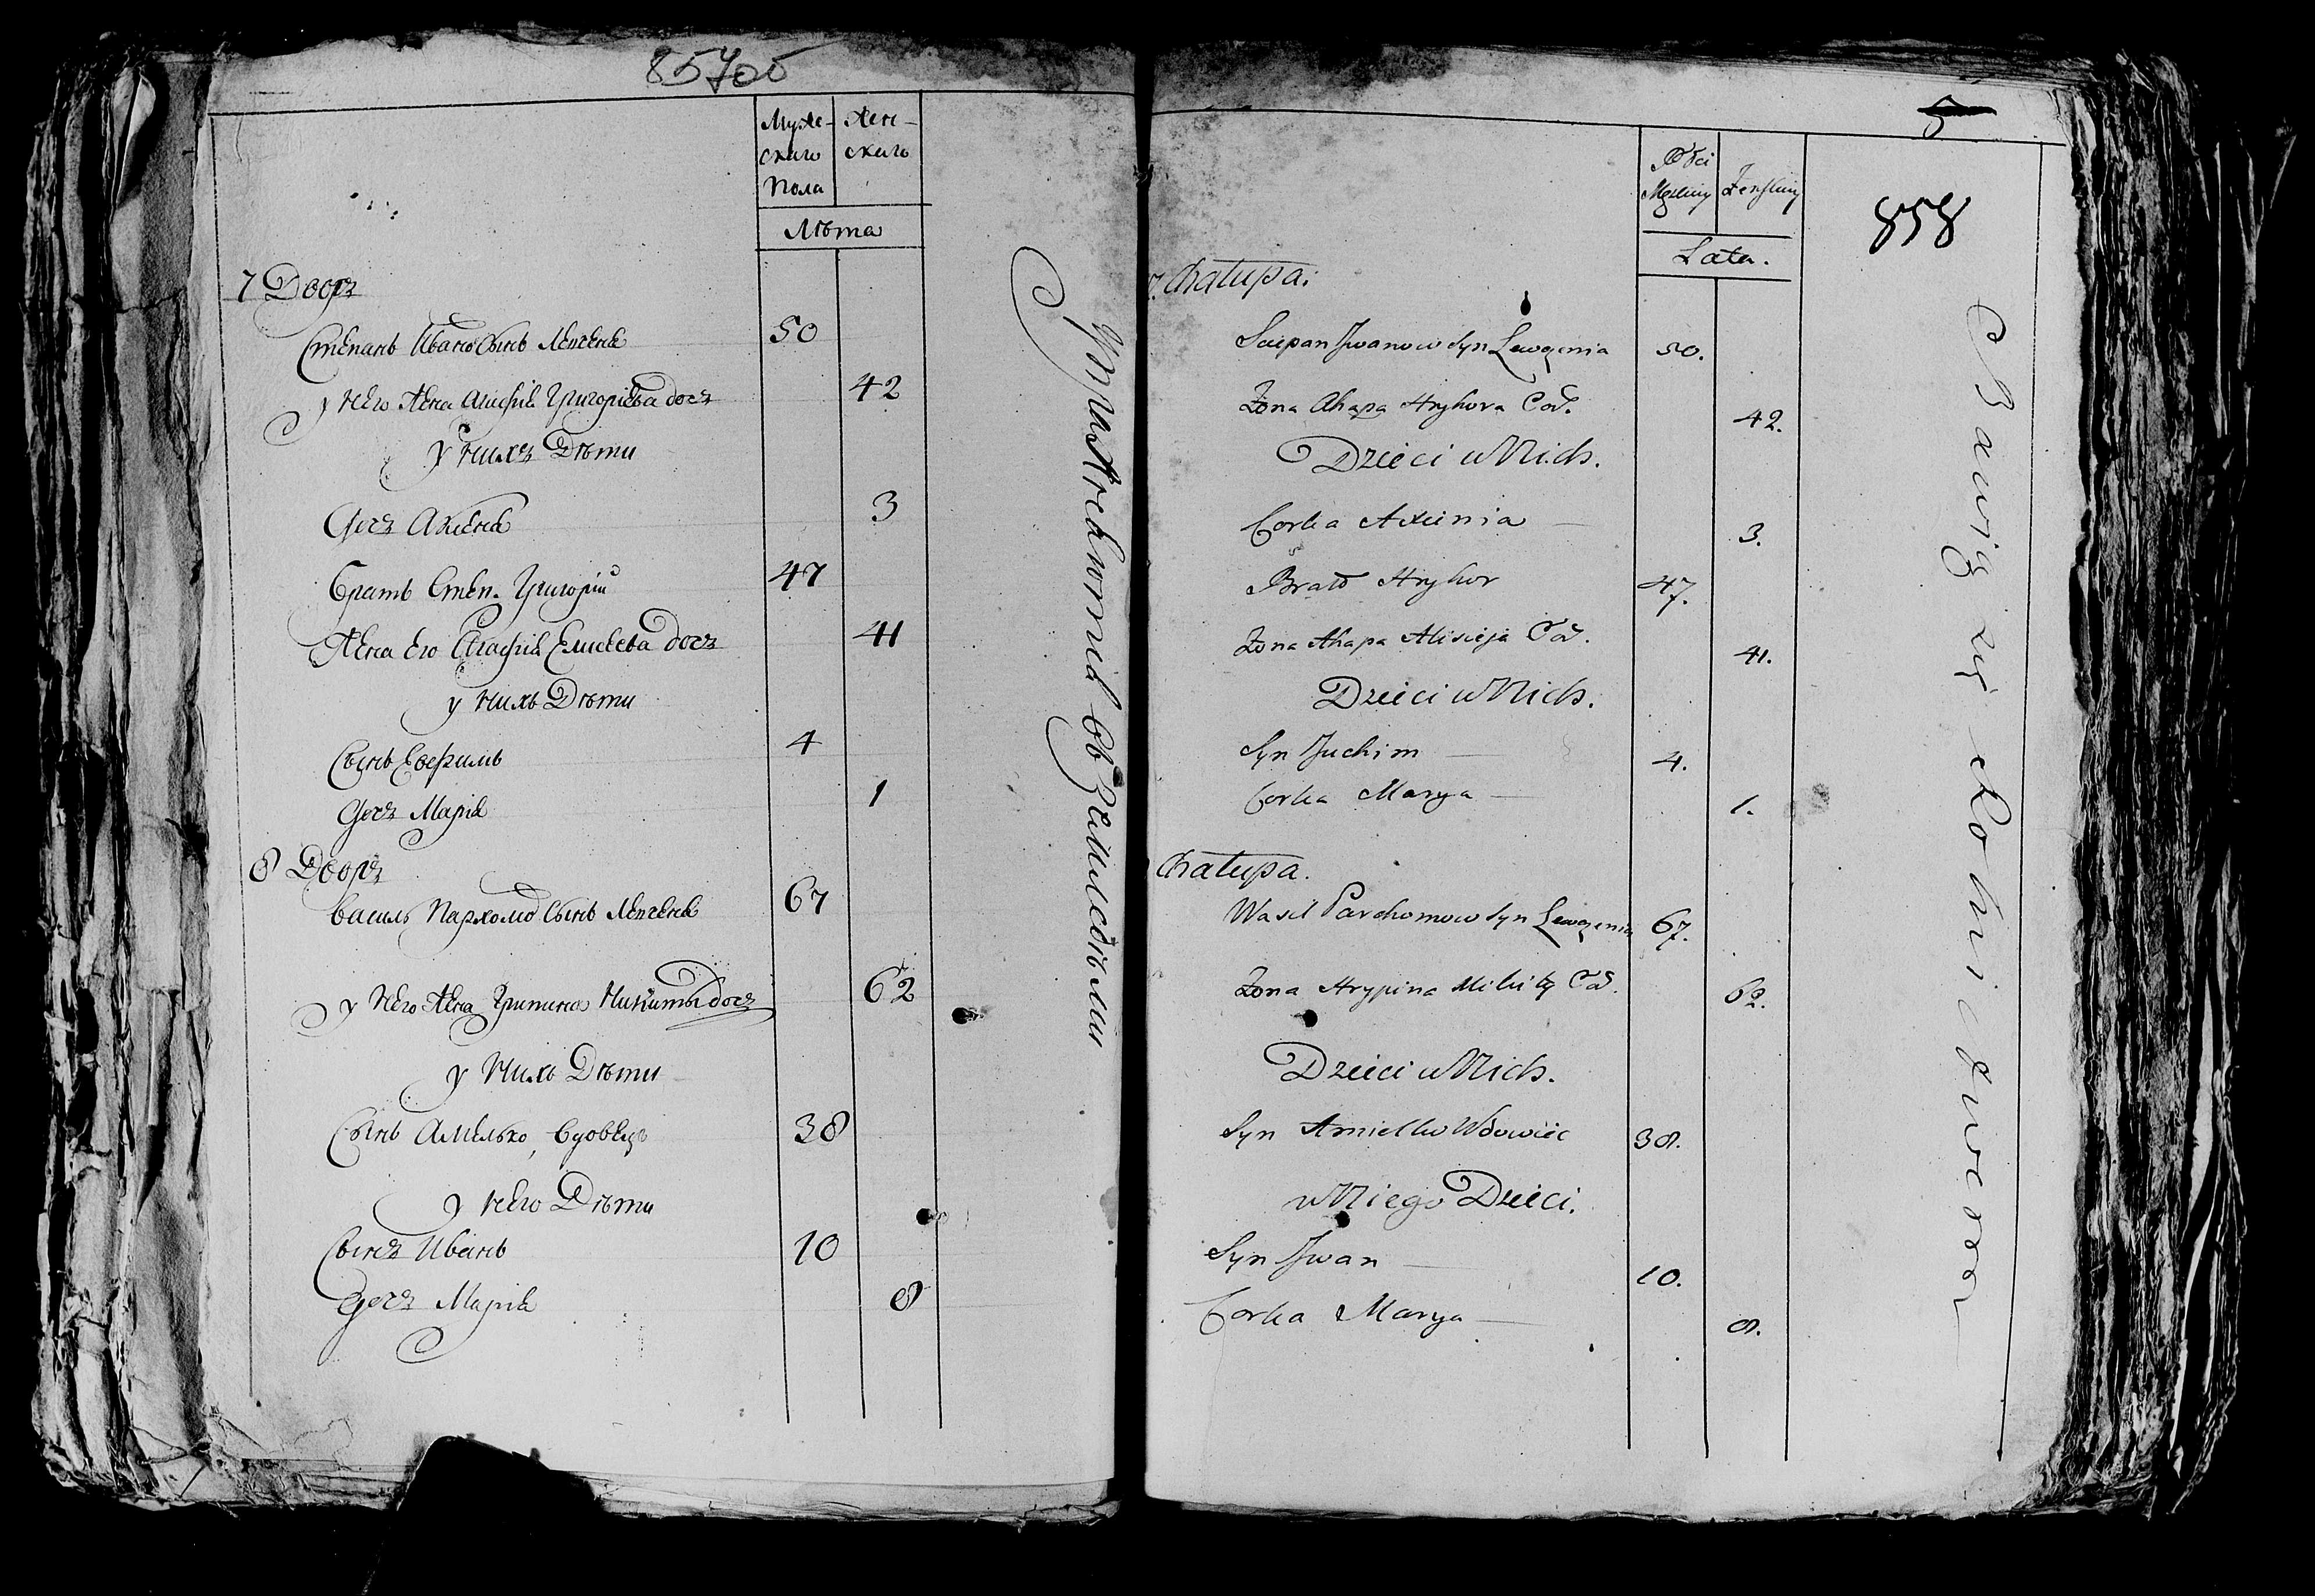 857об
Муже-
скаго
Пола
Жен-
скаго
Лѣта
7 Дворъ
Степанъ Ивановъ Сынъ 50
у него Жена Агафия Григорьева дочь 42
у нихъ Дѣти
Дочь 3
Братъ Степ. Григорій 47
Жена его Агафия Елисеева дочь 41
у нихъ Дѣти
Сынъ Ефимъ 4
Дочь Мария 1
8 Дворъ
Василь Пархомов Сынъ 67
у него Жена Грипина Никиты дочь 62
у нихъ Дѣти
Сынъ Амелько, Вдовецъ 38
у него Дѣти
Сынъ Иванъ 10
Дочь Мария 8
5
858
Płci
Męskiey
Żenskiey
Lata.
7. Chałupa.
Sciepan Jwanow Syn Lewczenia 50.
Żona Ahapa Hryhora Cor. 42.
Dzieci u Nich.
Corka Axinia 3.
Brat Hryhor 47.
Żona Ahapa Alisieja Cor. 41.
Dzieci u Nich.
Syn Juchim 4.
Corka Marya 1.
Chałupa.
Wasil Parchomow Syn Lewczenia 67.
Żona Hrypina Mikity Cor. 62.
Dzieci u Nich.
Syn Amielko Wdowiec 38.
u Niego Dzieci.
Syn Jwan 10.
Corka Marya 8.